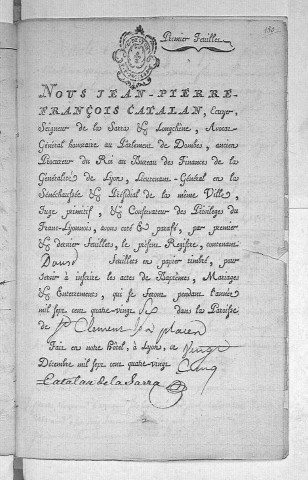 Premier Feuillet
NOUS JEAN-PIERRE-
FRANÇOIS CATALAN, Ecuyer,
Seigneur de la Sarra & Longchêne, Avocat
Général honoraire au Parlement de Dombes, ancien
Procureur du Roi au Bureau des Finances de la
Généralité de Lyon, Lieutenant-Général en la
Sénéchaussée & Présidial de la même Ville
Juge primitif, & Conservateur des Privileges du
Franc-Lyonnois, avons coté & parafé, par premier
& dernier feuillets, le présent Registre, contenant
Douze feuillets en papier timbré, pour
servir à inscrire les actes de Baptêmes, Mariages
& Enterremens, qui se feront pendant l'année
mil sept cent quatre-vingt Six dans la Paroisse
de St Clement
Fait en notre Hôtel, à Lyon, ce Vingt
Décembre mil sept cent quatre-vingt Cinq
Catalan de la Sarra